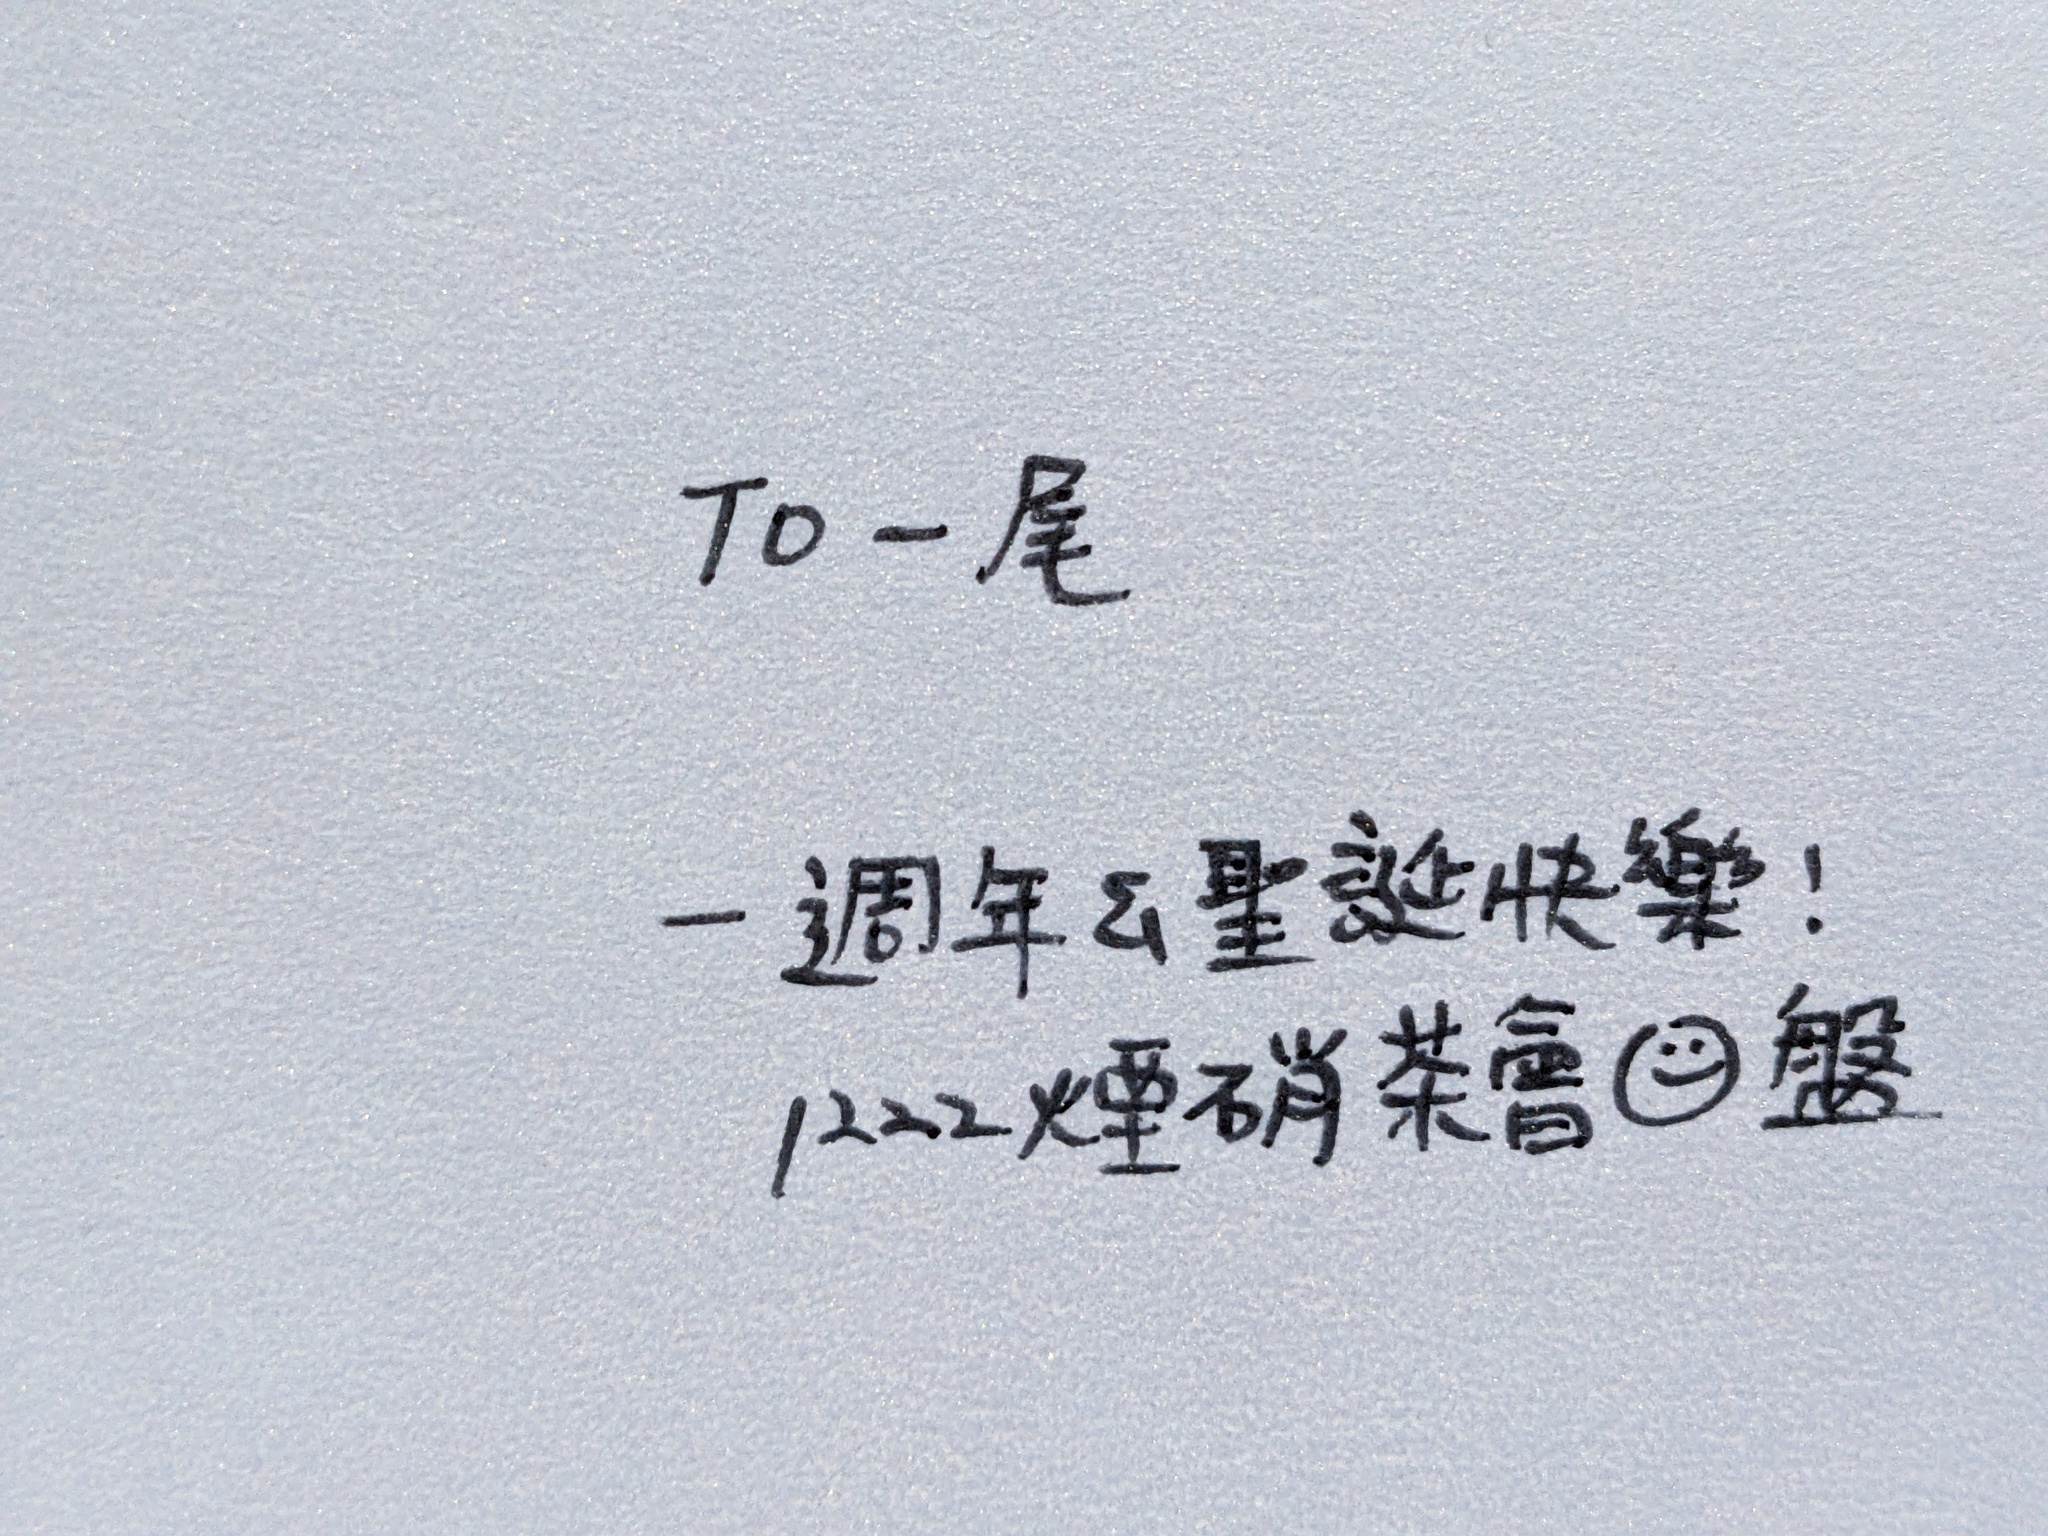 To 一尾
一週年&聖誕快樂!
1222煙硝茶會☺盤